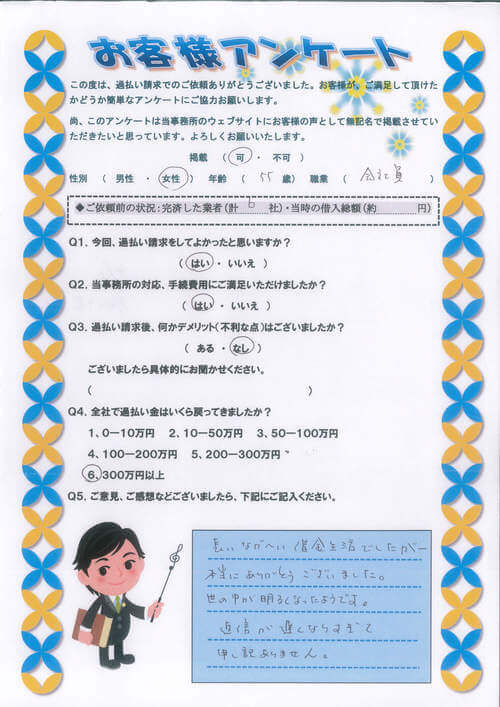 お客様アンケート
この度は、過払い請求でのご依頼ありがとうございました。お客様が、ご満足して頂けた
かどうか簡単なアンケートにご協力お願いします。
尚、このアンケートは当事務所のウェブサイトにお客様の声として無記名で掲載させてい
ただきたいと思っています。よろしくお願いいたします。
掲載 ( 可 ・ 不可 )
性別 ( 男性 ・ 女性 ) 年齢 ( 55 歳) 職業 ( 会社員 )
◆ご依頼前の状況:完済した業者(計 6 社)・当時の借入総額(約 円)
Q1. 今回、過払い請求をしてよかったと思いますか?
( はい ・ いいえ )
Q2. 当事務所の対応、手続費用にご満足いただけましたか?
( はい ・ いいえ )
Q3. 過払い請求後、何かデメリット(不利な点)はございましたか?
( ある ・ なし )
ございましたら具体的にお聞かせください。
( )
Q4. 全社で過払い金はいくら戻ってきましたか?
1、0-10万円 2、10-50万円 3、50-100万円
4、100-200万円 5、200-300万円
6、300万円以上
Q5. ご意見、ご感想などございましたら、下記にご記入ください。
長いながーい借金生活でしたがー
本当にありがとうございました。
世の中が明るくなったようです。
返信が遅くなりすぎて
申し訳ありません。